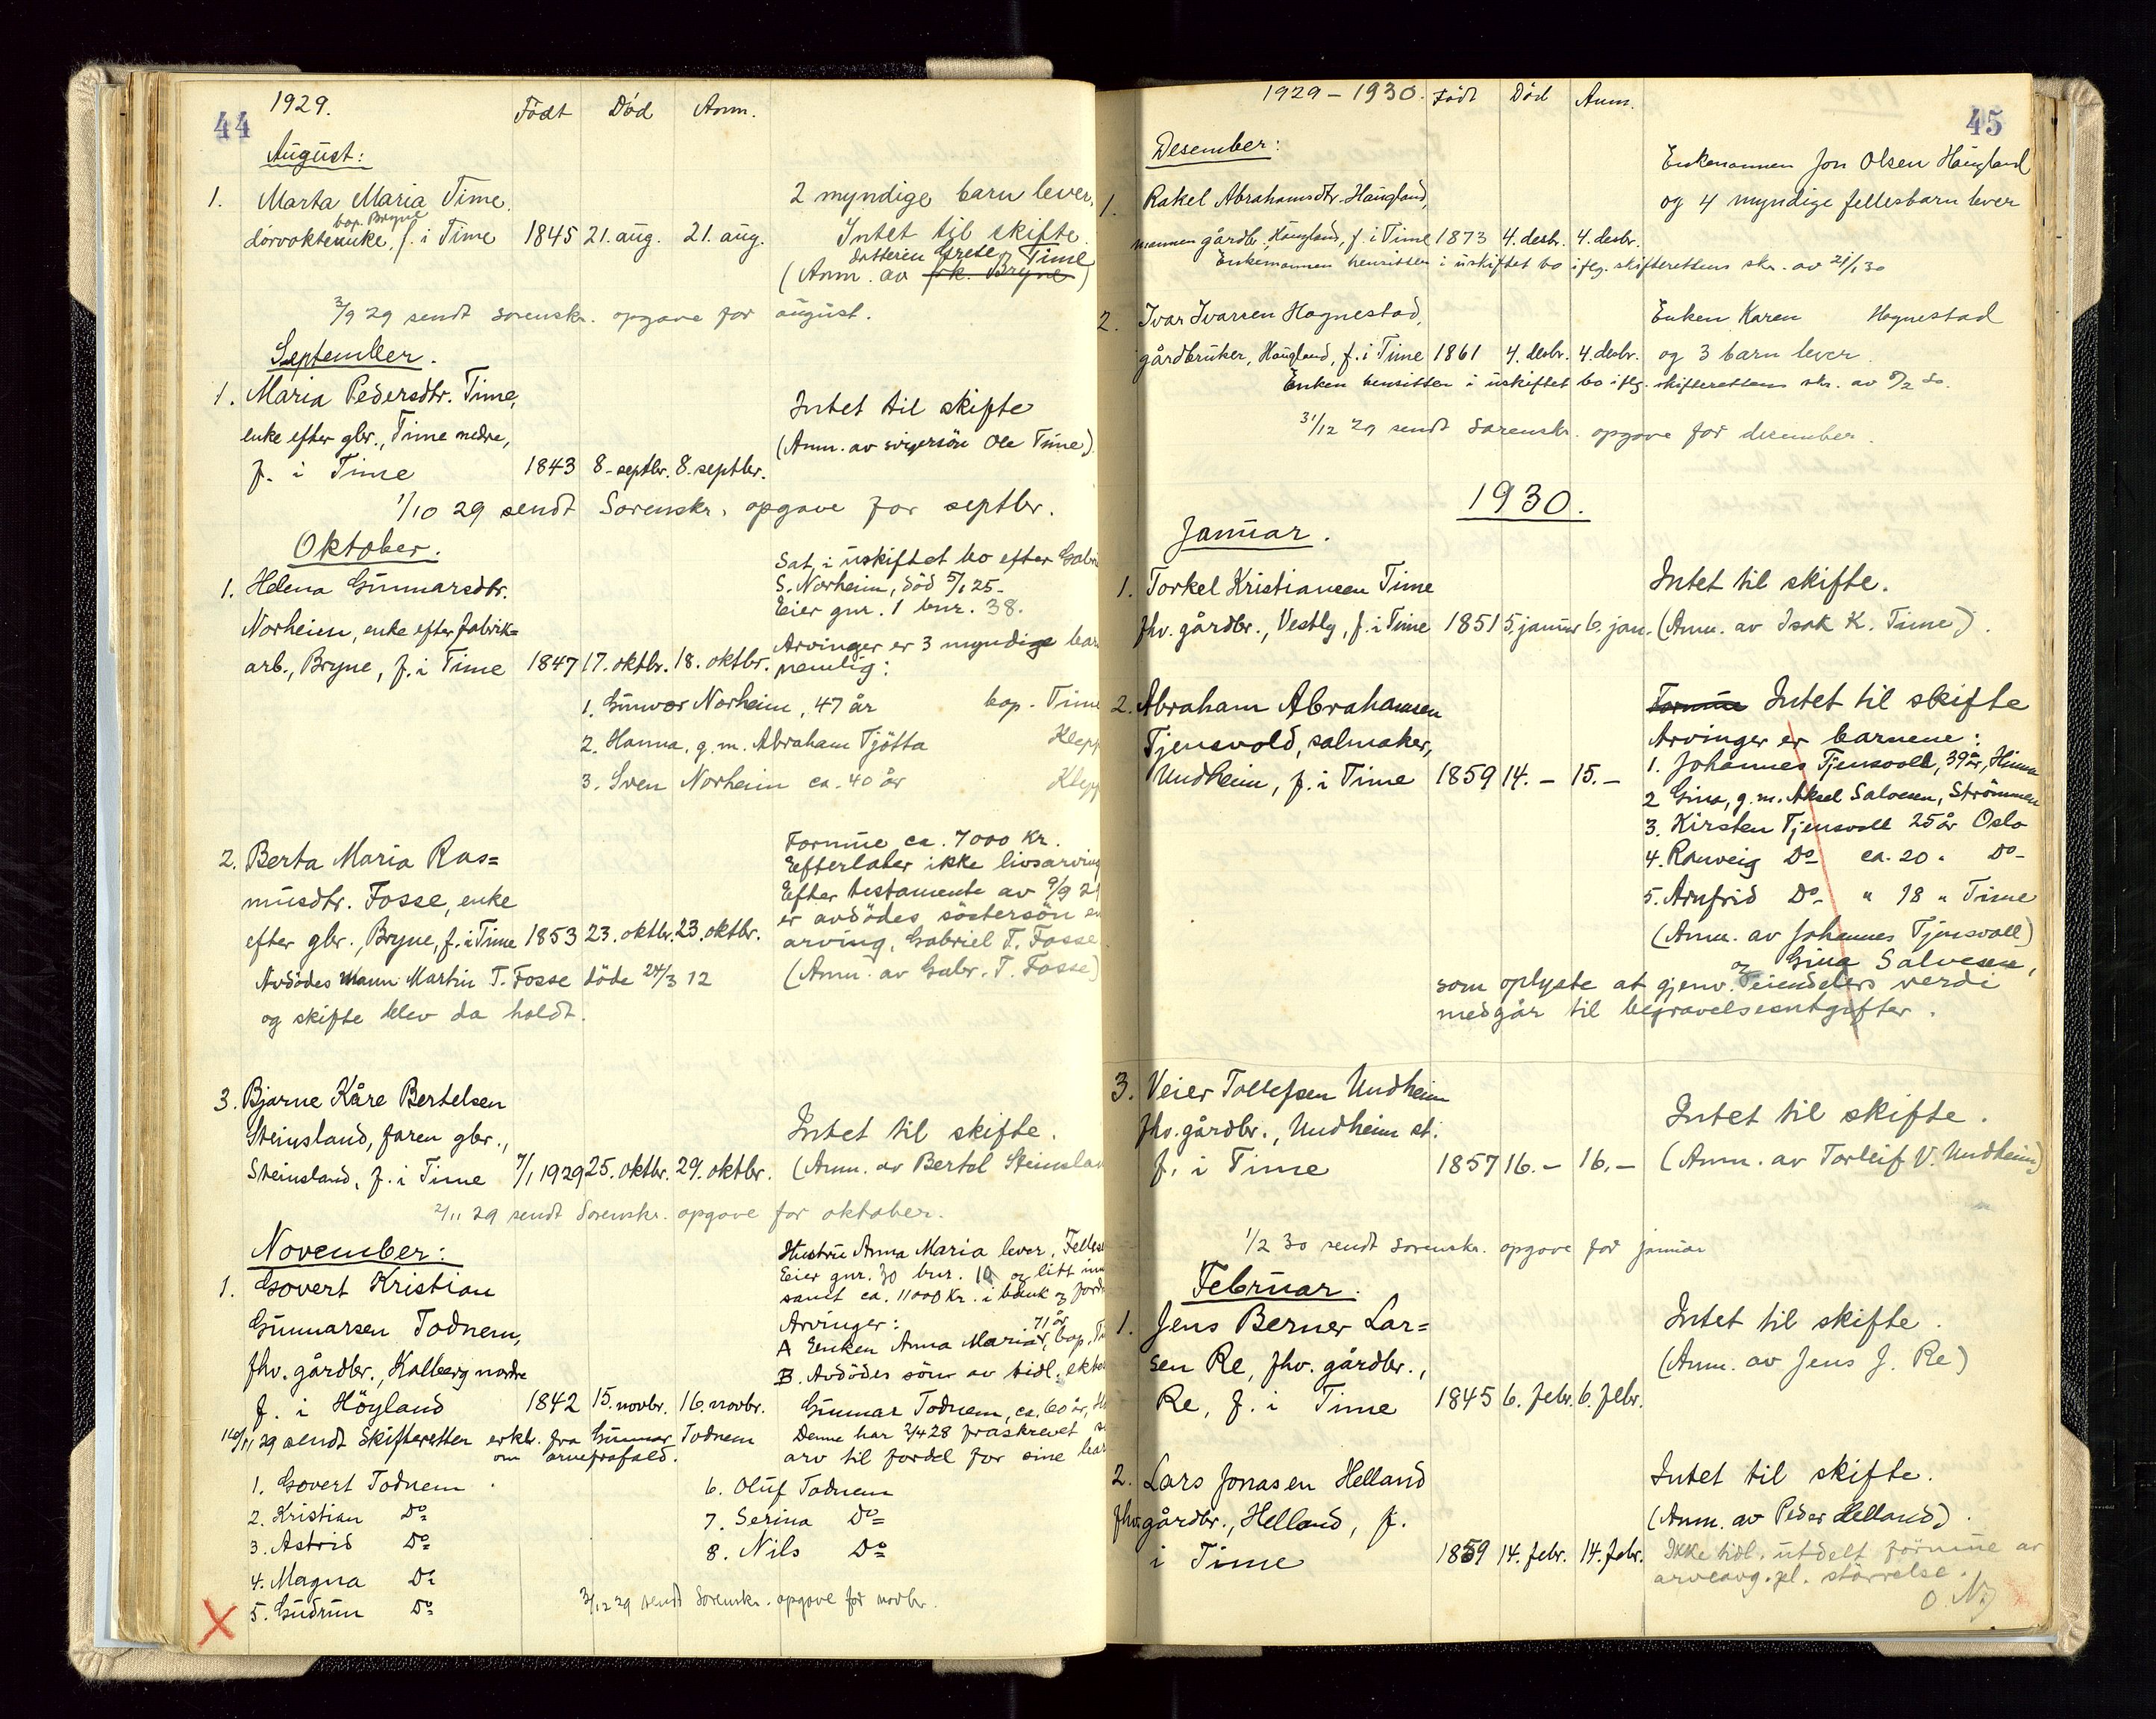 44
1929.
Födt Död Anm.
August:
1. Marta Maria Time 2 myndige barn lever,
bop. Bryne
dørvokterenke, f. i Time 1845 21. aug. 21. aug. Intet til skifte
datteren Grete Time
(Anm. av frk. Bryne)
3/9 29 sendt sorenskr. opgave for august.
September.
1. Maria Pedersdtr. Time, Intet til skifte
enke efter gbr., Time nedre, (Anm. av svigersön Ole Time)
f. i Time 1843 8. septbr. 8. septbr.
1/10 29 sendt Sorenskr. opgave for septbr.
Oktober.
Sat i uskiftet bo efter Gabr
1. Helena Gunnarsdtr. S. Norheim, död 5/1 25.
Eier gnr. 1 bnr. 38.
Norheim, enke efter fabrik=
Arvinger er 3 myndige bar
arb., Bryne, f. i Time 1847 17. oktbr. 18. oktbr. nemlig:
1. Gunvor Norheim, 47 år bop. Time
2. Hanna, g. m. Abraham Tjötta Klepp
3. Sven Norheim ca. 40 år Klepp
Formue ca. 7000 kr.
2. Berta Maria Ras= Efterlater ikke livsarving
Efter testamente av 9/9 21
musdtr. Fosse, enke er avdödes söstersön en
efter gbr., Bryne, f. i Time 1853 23. oktbr. 23. oktbr. arving, Gabriel T. Fosse
Avdödes mann Martin T. Fosse döde 24/3 12 (Anm. av Gabr. T. Fosse)
og skifte blev da holdt.
3. Bjarne Kåre Bertelsen
Steinsland, faren gbr., Intet til skifte.
Steinsland, f. i Time 7/1 1929 25. oktbr. 29. oktbr. (Anm. av Bertel Steinslan
2/11 29 sendt Sorenskr. opgave for oktober.
November:
Hustru Anna Maria lever. Felles
1. Govert Kristian Eier gnr. 30 bnr. 10 og litt inn
samt ca. 11000 kr. i bank og ford
Gunnarsen Todnem, Arvinger: 71 år
A Enken Anna Maria, bop. Ti
fhv. gårdbr., Kalberg nordre B. Avdödes sön av tidl. ekte
f. i Höyland 1842 15. novbr. 16. novbr. Gunnar Todnem, ca. 60 år, H
16/11 29 sendt Skifteretten erkl. fra Gunnar Todnem Denne har 2/4 28 fraskrevet s
om arvefrafald. arv til fordel for sine bar
1. Govert Todnem
2. Kristian Do
3. Astrid Do
4. Magna Do
5. Gudrun Do
6. Oluf Todnem
7. Serina Do
8. Nils Do
3/12 29 sendt Sorenskr. opgave for novbr.
45
1929 – 1930. Födt Död Anm.
Desember:
Enkemannen Jon Olsen Haugland
1. Rakel Abrahamsdtr. Haugland, og 4 myndige fellesbarn lever
mannen gårdb., Haugland, f. i Time 1873 4. desbr. 4. desbr.
Enkemannen hensitter i uskiftet bo iflg. skifterettens skr. av 21/1 30
2. Ivar Ivarsen Hognestad, Enken Karen Hognestad
gårdbruker, Haugland, f. i Time 1861 4. desbr. 4. desbr. og 3 barn lever
Enken hensitter i uskiftet bo iflg. skifterettens skr. av 5/2 30.
31/12 29 sendt Sorenskr. opgave for desember.
1930.
Januar.
1. Torkel Kristiansen Time Intet til skifte.
fhv. gårdbr., Vestly, f. i Time 1851 5. januar 6. jan. (Anm. av Isak K. Time).
2. Abraham Abrahamsen Formue Intet til skifte
Tjensvold, salmaker, Arvinger er barnene:
Undheim, f. i Time 1859 14. – 15. – 1. Johannes Tjensvoll, 39 år, Hinna
2 Gina, g. m. Aksel Salvesen, Strömmen
3. Kirsten Tjensvoll 25 år Oslo
4. Ranveig Do ca. 20 " Do
5. Arnfrid Do " 18 " Time
(Anm. av Johannes Tjensvoll)
og Gina Salvesen,
som oplyste at gjenv. eiendelers verdi
medgår til begravelsesutgifter.
3. Veier Tollefsen Undheim
fhv. gårdbr., Undheim st. Intet til skifte.
f. i Time 1857 16. – 16. – (Anm. av Torleif V. Undheim)
1/2 30 sendt Sorenskr. opgave for januar
Februar.
1. Jens Berner Lar= Intet til skifte.
sen Re, fhv. gårdbr., (Anm. av Jens J. Re)
Re, f. i Time 1845 6. febr. 6. febr.
2. Lars Jonasen Helland Intet til skifte.
fhv. gårdbr., Helland, f. (Anm. av Peder Helland).
i Time 1859 14. febr. 14. febr. Ikke tidl. utdelt formue av
arveavg. pl. störrelse.